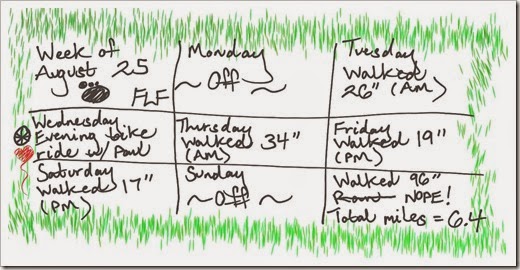 Week of
August 25
FLF
Monday
~ Off ~
Tuesday
Walked
26" (AM)
Wednesday
Evening bike
ride w/ Paul
Thursday
Walked 34"
(AM)
Friday
Walked 19"
(PM)
Saturday
Walked 17"
(PM)
Sunday
~ Off ~
Walked 96"
NOPE!
Total miles = 6.4